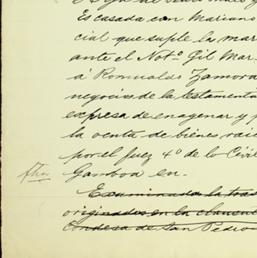 Es casada con Mariano
cial que suple la mar
ante el Not.º Gil Mar
á Romualdo Zamora
negocios de la testamenta
expresa de enagenar y p
la venta de bienes raic
por el Juez 4º de lo Civil
Gamboa en.
Examinada la tras
originados en la
Condesa de San Pedro